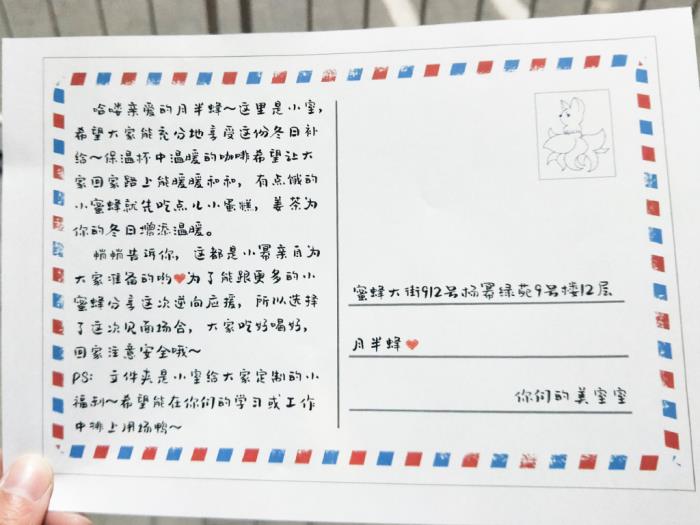 哈喽亲爱的月半蜂～这里是小室，
希望大家能充分地享受这份冬日补
给～保温杯中温暖的咖啡希望让大
家回家路上能暖暖和和，有点饿的
小蜜蜂就先吃点儿小蛋糕，姜茶为
你的冬日增添温暖。
悄悄告诉你，这都是小幂亲自为
大家准备的哟❤为了能跟更多的小
蜜蜂分享这次逆向应援，所以选择
了这次见面场合，大家吃好喝好，
回家注意安全哦～
PS：文件夹是小室给大家定制的小
福利～希望能在你们的学习或工作
中排上用场鸭～
蜜蜂大街912号杨幂绿苑9号楼12层
月半蜂❤
你们的美室室